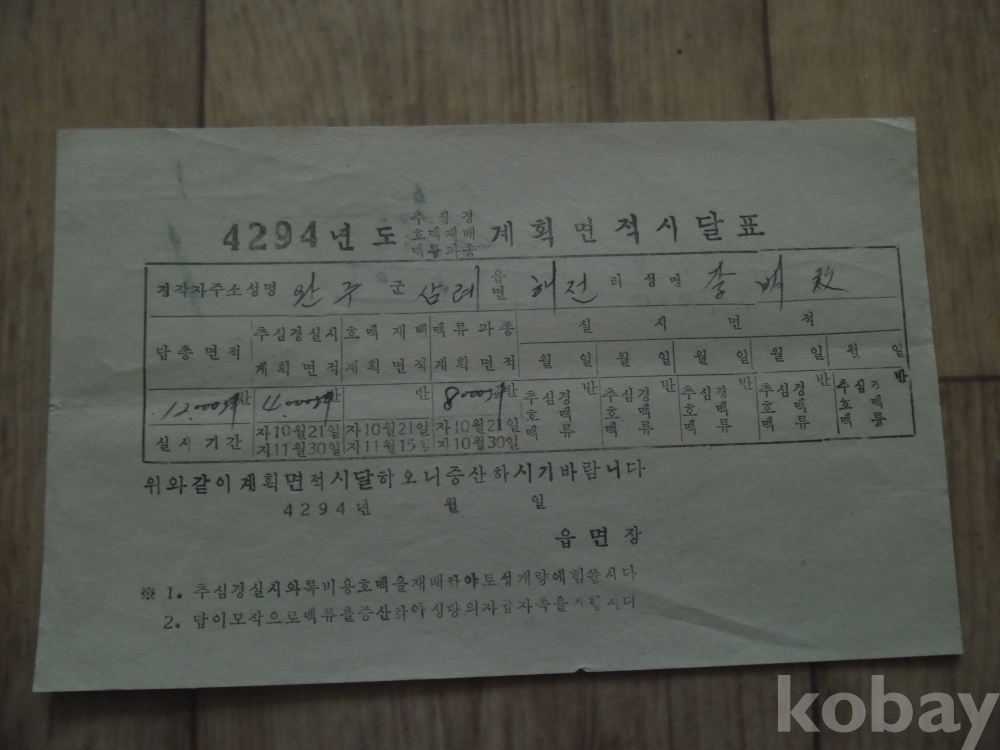 추심경
4294년도 호맥재배 계획면적시달표
맥류과종
경작자주소성명 완주 군 삼례 읍면 해전 리 성명
답총면적 추심경실시 호맥재배 맥류과종 실시면적
계획면적 계획면적 계획면적 월일 월일 월일 월일 월일
반 반 반 반 추심경 반 추심경 반 추심경 반 추심경 반 추심경 반
호맥 호맥 호맥 호맥 호맥
실시기간 자10월21일 자10월21일 자10월21일 맥류 맥류 맥류 맥류 맥류
지11월30일 지11월15일 지10월30일
위와같이계획면적시달하오니증산하시기바랍니다
4294년 월 일
읍면장
※ 1. 추심경실시와록비용호맥을재배하야토성개량에힘쓸시다
2. 답이모작으로맥류를증산하야식량의자급자족을기합시다
kobay